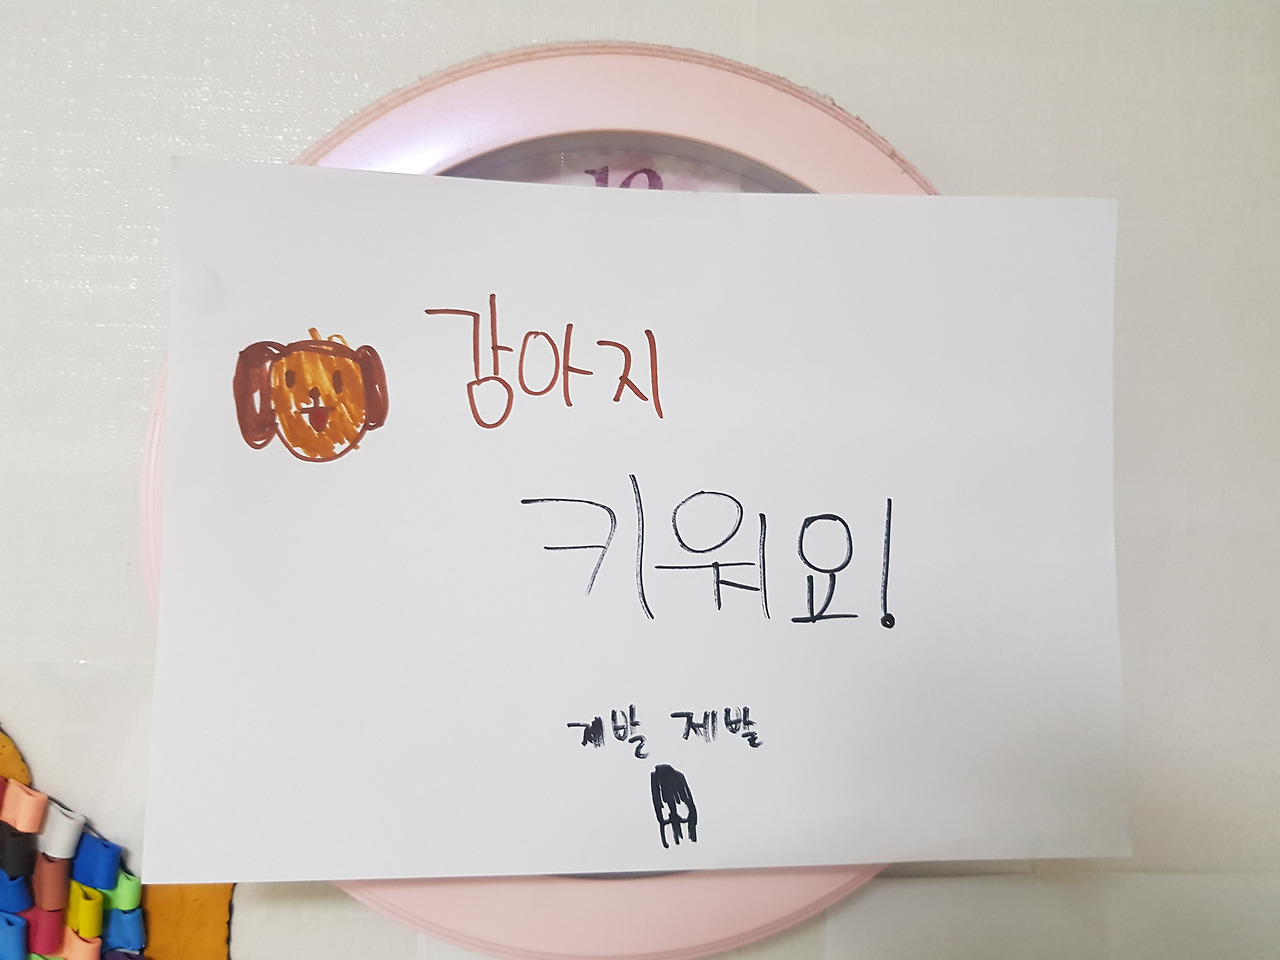 12
강아지
키워요!
제발 제발